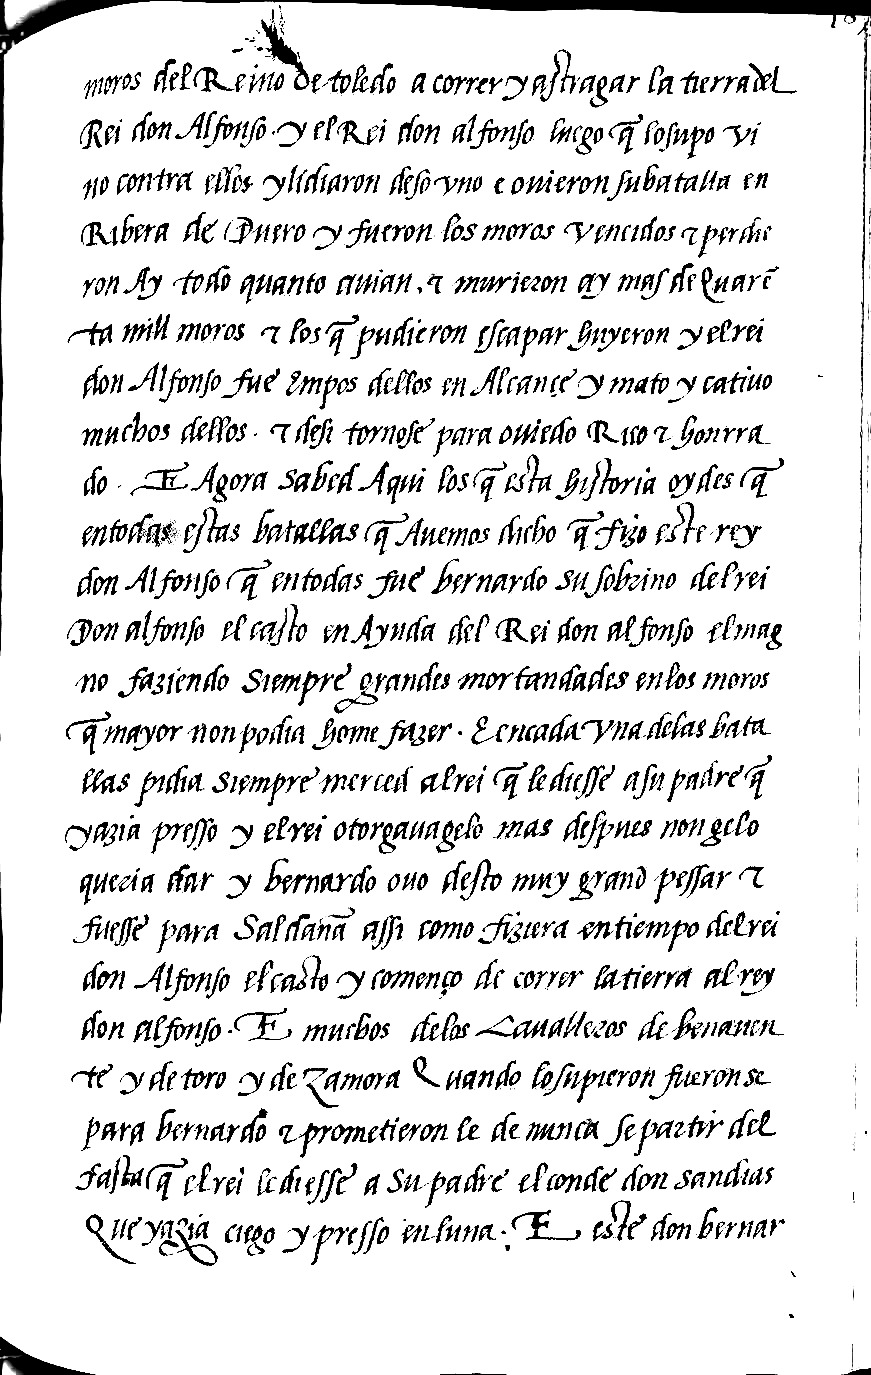 moros del Reino de toledo a correr y astragar la tierra del
Rei don Alfonso. y el Rei don alfonso luego q̃ losupo vi
no contra ellos ylidiaron deso vno e ouieron subatalla en
Ribera de Duero y fueron los moros vencidos ⁊ perdie
ron Ay todo quanto auian, ⁊ murieron ay mas de Quarẽ
ta mill moros ⁊ los q̃ pudieron escapar huyeron y elrei
don Alfonso fue Empos dellos en Alcançe y mato y catiuo
muchos dellos. ⁊ desi tornose para ouiedo Rico ⁊ honrra
do. E Agora sabed Aqui los q̃ esta historia oydes q̃
entodas estas batallas q̃ Auemos dicho q̃ fizo este rey
don Alfonso q̃ entodas fue bernardo su sobrino del rei
Don alfonso el casto en Ayuda del Rei don alfonso elmag
no faziendo siempre grandes mortandades enlos moros
q̃ mayor non podia home fazer. E encada vna delas bata
llas pidia siempre merced alrei q̃ le diesse asu padre q̃
yazia presso y elrei otorgauagelo mas despues non gelo
queria dar y bernardo ouo desto muy grand pessar ⁊
fuesse para Saldaña assi como fiziera entiempo delrei
don Alfonso elcasto y començo de correr latierra al rey
don alfonso. E muchos delos Caualleros de benauen
te y de toro y de Zamora Quando losupieron fueronse
para bernardo ⁊ prometieron le de nunca se partir del
fasta q̃ elrei lediesse a su padre elconde don sandias
Que yazia ciego y presso enluna. E este don bernar